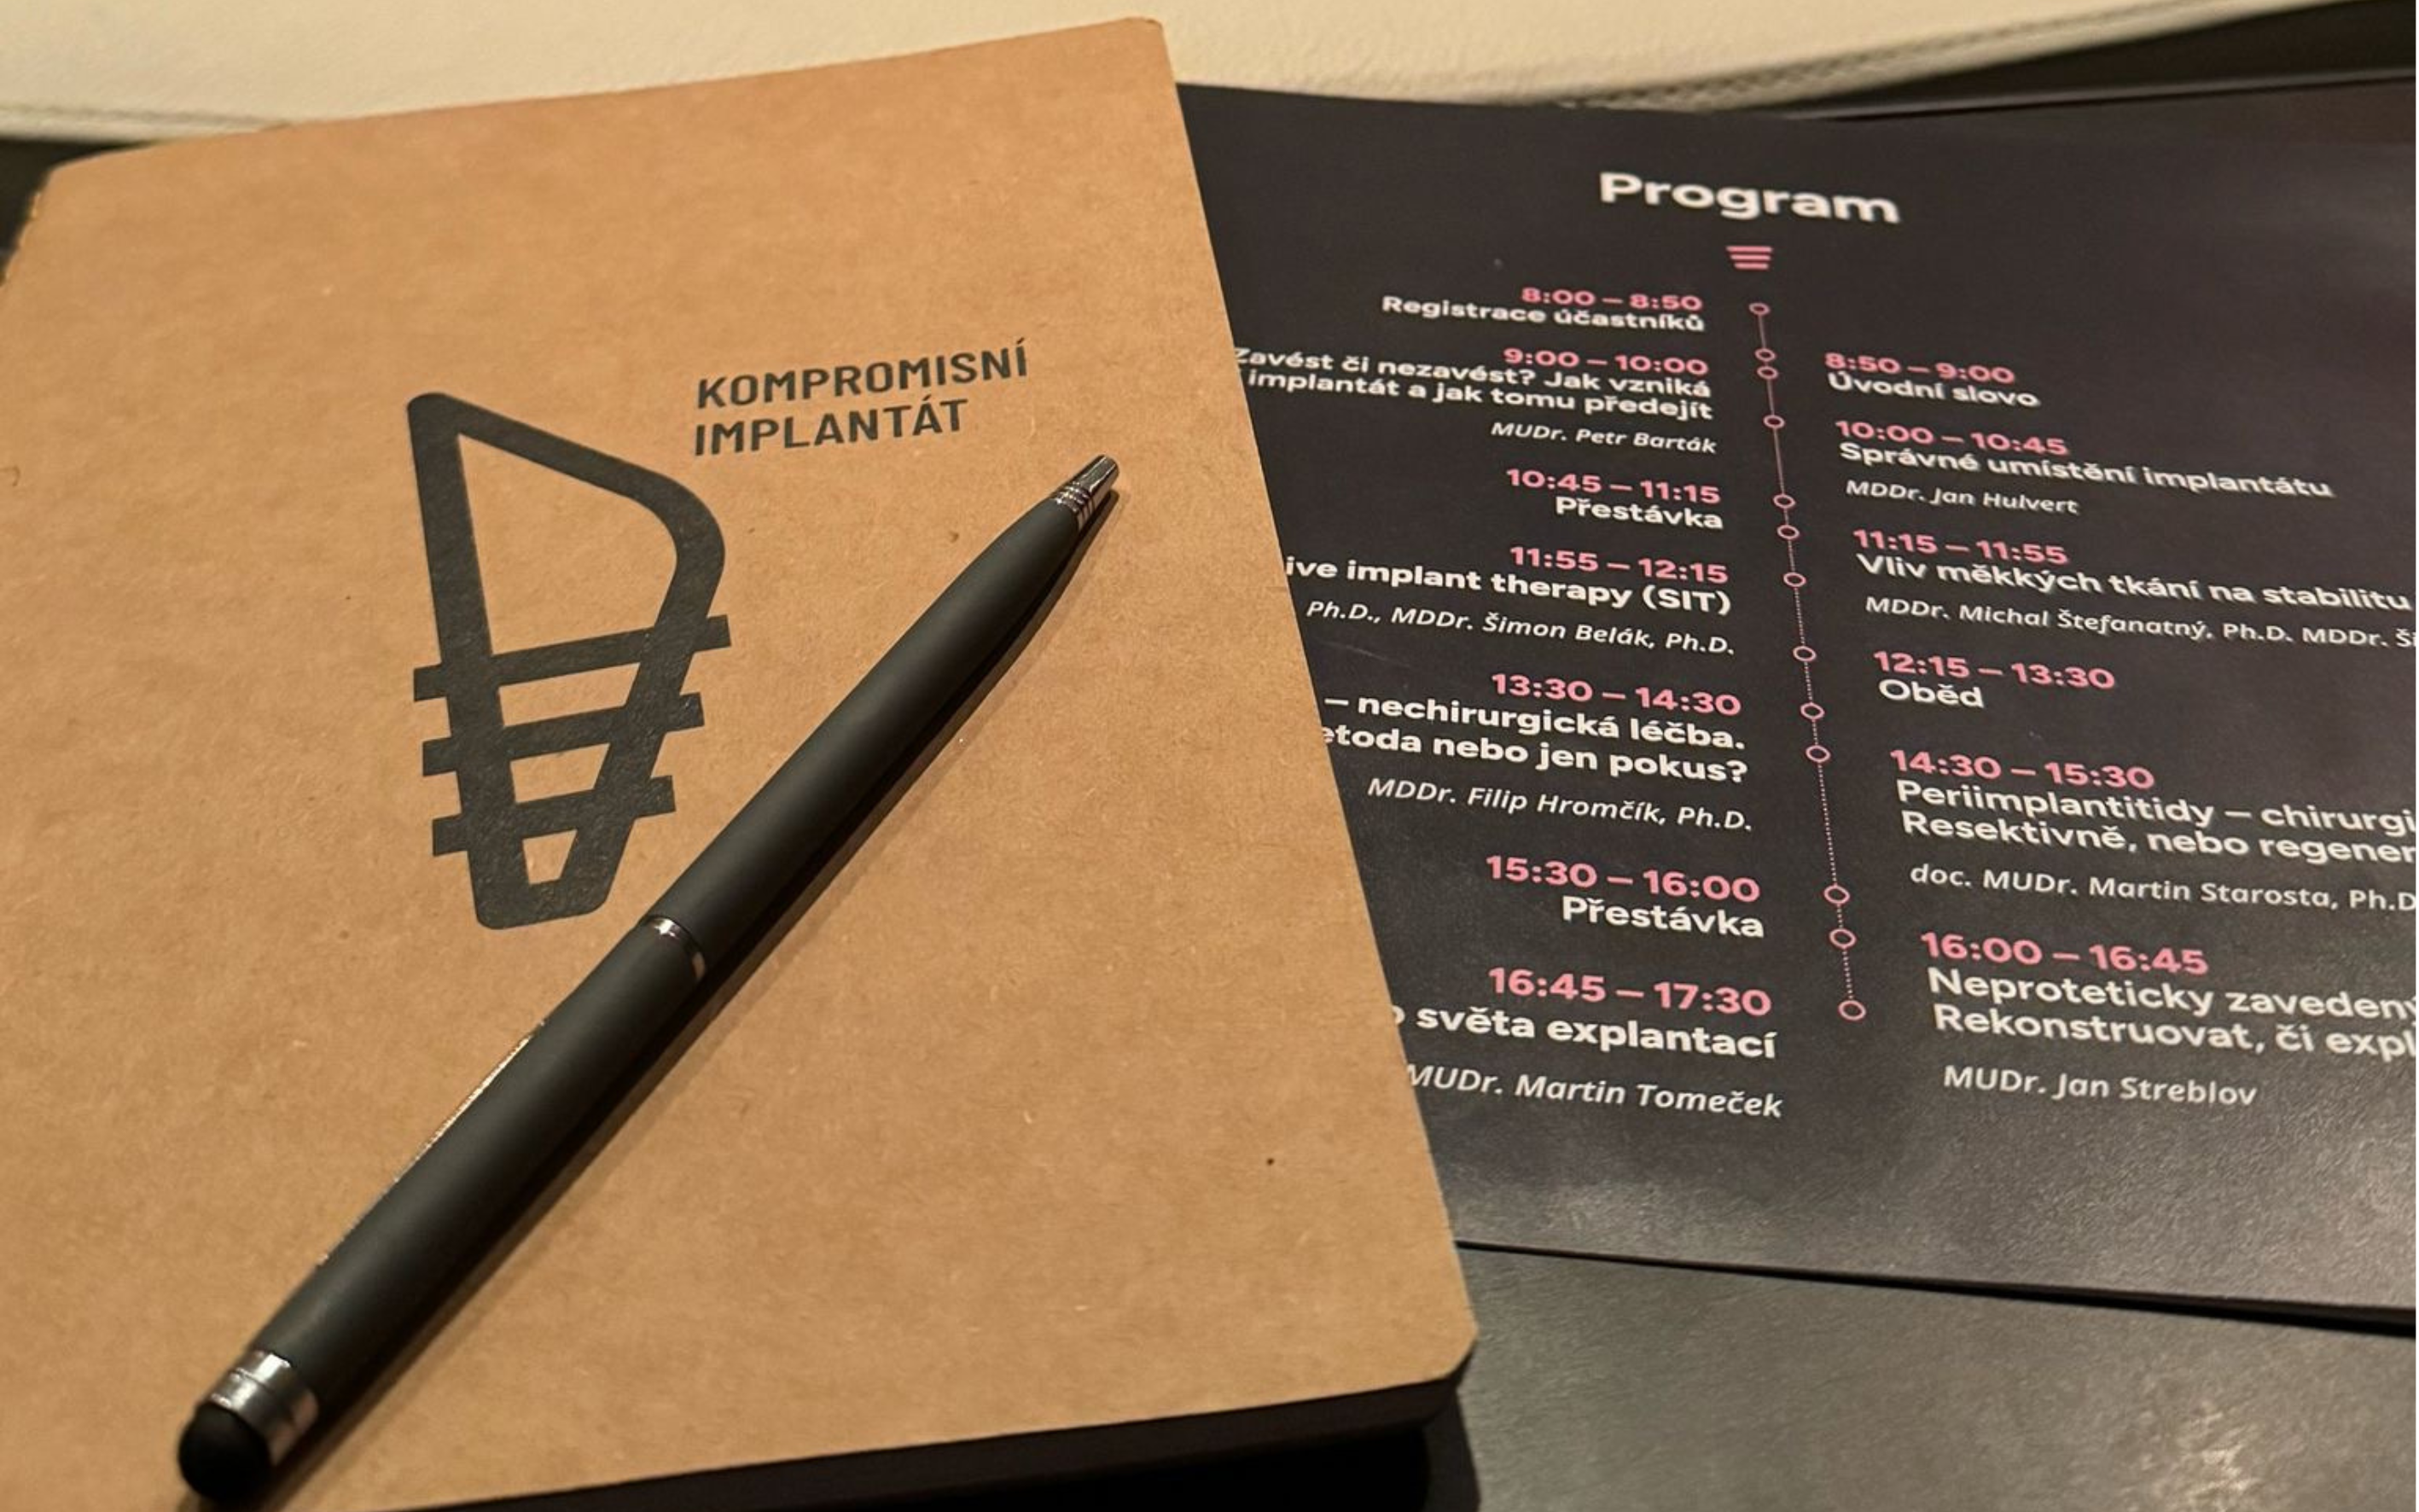 KOMPROMISNÍ
IMPLANTÁT
Program
8:00 – 8:50
Registrace účastníků
8:50 – 9:00
Úvodní slovo
9:00 – 10:00
Zavést či nezavést? Jak vzniká
implantát a jak tomu předejít
MUDr. Petr Barták
10:00 – 10:45
Správné umístění implantátu
MDDr. Jan Hulvert
10:45 – 11:15
Přestávka
11:15 – 11:55
Vliv měkkých tkání na stabilitu
MDDr. Michal Štefanatný, Ph.D. MDDr.
11:55 – 12:15
implant therapy (SIT)
Ph.D., MDDr. Šimon Belák, Ph.D.
12:15 – 13:30
Oběd
13:30 – 14:30
– nechirurgická léčba.
nebo jen pokus?
MDDr. Filip Hromčík, Ph.D.
14:30 – 15:30
Periimplantitidy –
Resektivně, nebo
doc. MUDr. Martin Starosta, Ph.D
15:30 – 16:00
Přestávka
16:00 – 16:45
Neproteticky
Rekonstruovat, či
MUDr. Jan Streblov
16:45 – 17:30
světa explantací
MUDr. Martin Tomeček